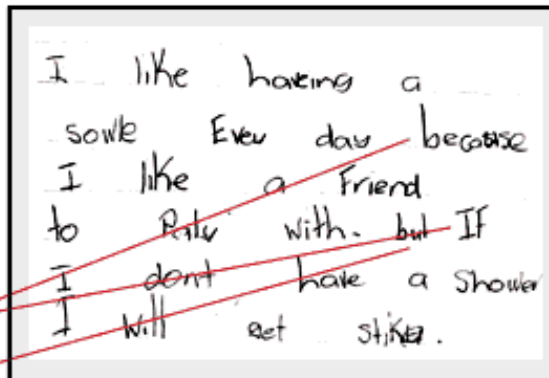 I like having a
sowle Every day because
I like a Friend
to Play with. but IF
I dont have a shower
I will get stiker.